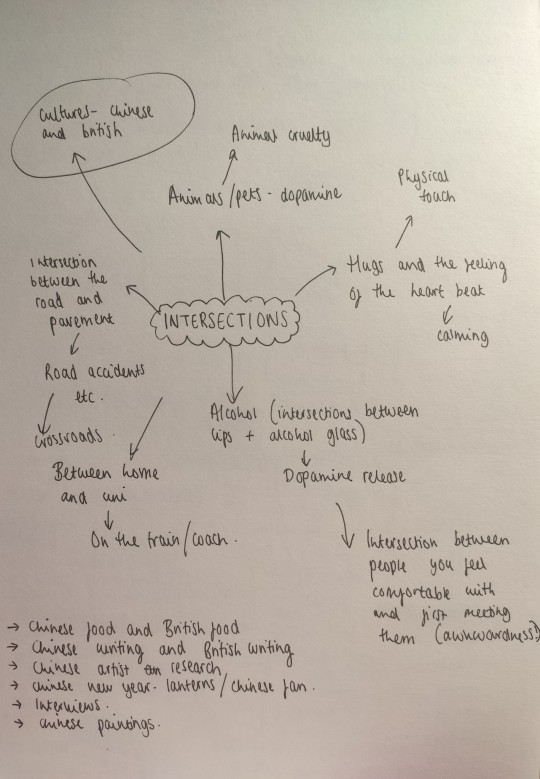 Cultures- Chinese
and british
Animal cruelty
Animals/pets - dopamine
Physical
touch
Intersection
between the
road and
pavement
Hugs and the feeling
of the heart beat
calming
INTERSECTIONS
Road accidents
etc.
Crossroads.
Alcohol (intersections between
lips + alcohol glass)
Dopamine release
Between home
and uni
On the train/coach.
Intersection between
people you feel
comfortable with
and first meeting
them (awkwardness)
→ Chinese food and British food
→ Chinese writing and British writing
→ Chinese artist research
→ Chinese new year- lanterns/Chinese fan.
→ Interviews.
→ Chinese paintings.